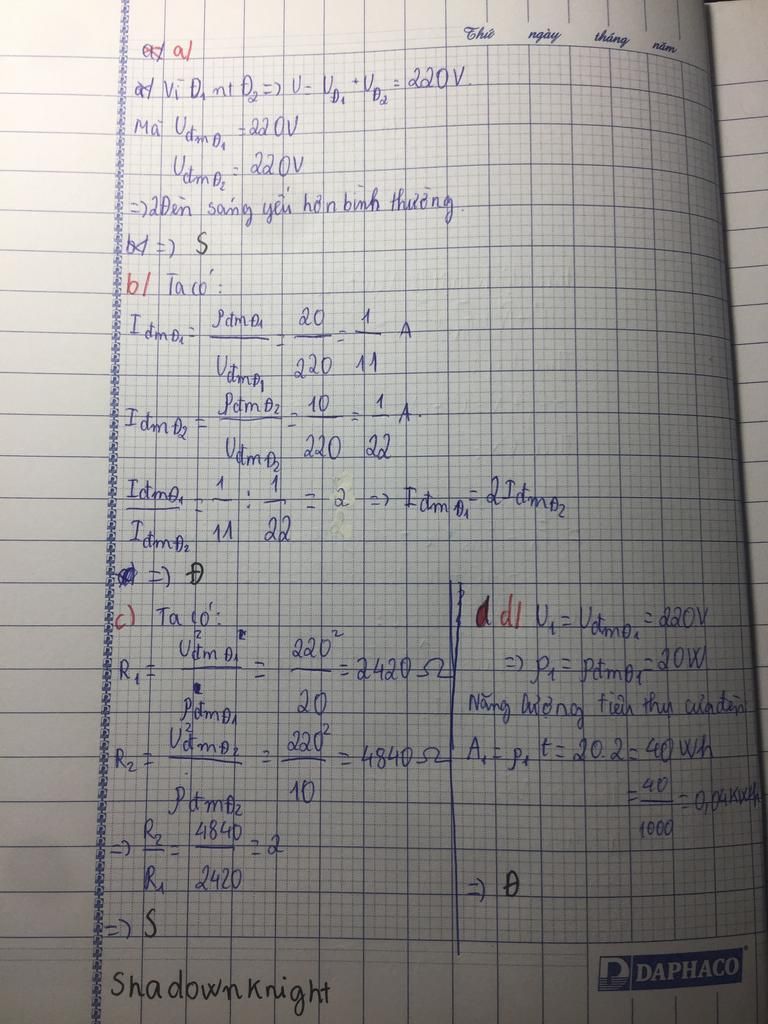 Thứ ngày tháng năm
a)
Vì Đ₁ nt Đ₂ => U = U_Đ₁ + U_Đ₂ = 220V
Mà U_đmĐ₁ = 220V
U_đmĐ₂ = 220V
=> 2 Đèn sáng yếu hơn bình thường.
=> S
b) Ta có:
I_đmĐ₁ = P_đmĐ₁/U_đmĐ₁ = 20/220 = 1/11 A
I_đmĐ₂ = P_đmĐ₂/U_đmĐ₂ = 10/220 = 1/22 A.
I_đmĐ₁/I_đmĐ₂ = 1/11 : 1/22 = 2 => I_đmĐ₁ = 2I_đmĐ₂
=> Đ
c) Ta có:
R₁ = U²_đmĐ₁/P_đmĐ₁ = 220²/20 = 2420 Ω
R₂ = U²_đmĐ₂/P_đmĐ₂ = 220²/10 = 4840 Ω
=> R₂/R₁ = 4840/2420 = 2
=> S
d) U₁ = U_đmĐ₁ = 220V
=> P₁ = P_đmĐ₁ = 20W
Năng lượng tiêu thụ của đèn
A₁ = P₁ t = 20.2 = 40 Wh
= 40/1000 = 0,04 KWh
=> Đ
DAPHACO
Shadownknight